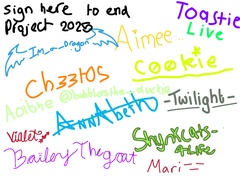 sign here to end
Project 2025
Toastie
Live
Im_a_Dragon
Aimee..
Ch33tOs
cookie
Aoibhe @bubblesthe_duckie
AnnAbeth
-Twilight-
Violet
Skyricats-
4Life
BaileyThegoat
Mari--